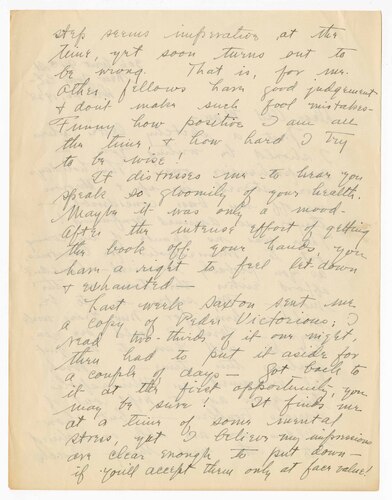 step seems inspiration at the
time, yet soon turns out to
be wrong. That is, for me.
Other fellows have good judgement
& dont make such fool mistakes—
Funny how positive I am all
the time, & how hard I try
to be wise!
It distresses me to hear you
speak so gloomily of your health.
Maybe it was only a mood—
After the intense effort of getting
the book off your hands, you
have a right to feel let-down
& exhausted—
Last week Saxton sent me
a copy of Pedro Victorious; I
read two-thirds of it one night,
then had to put it aside for
a couple of days— Got back to
it at the first opportunity, you
may be sure! It finds me
at a time of some mental
stress, yet I believe my impressions
are clear enough to put down—
if you'll accept them only at face value!